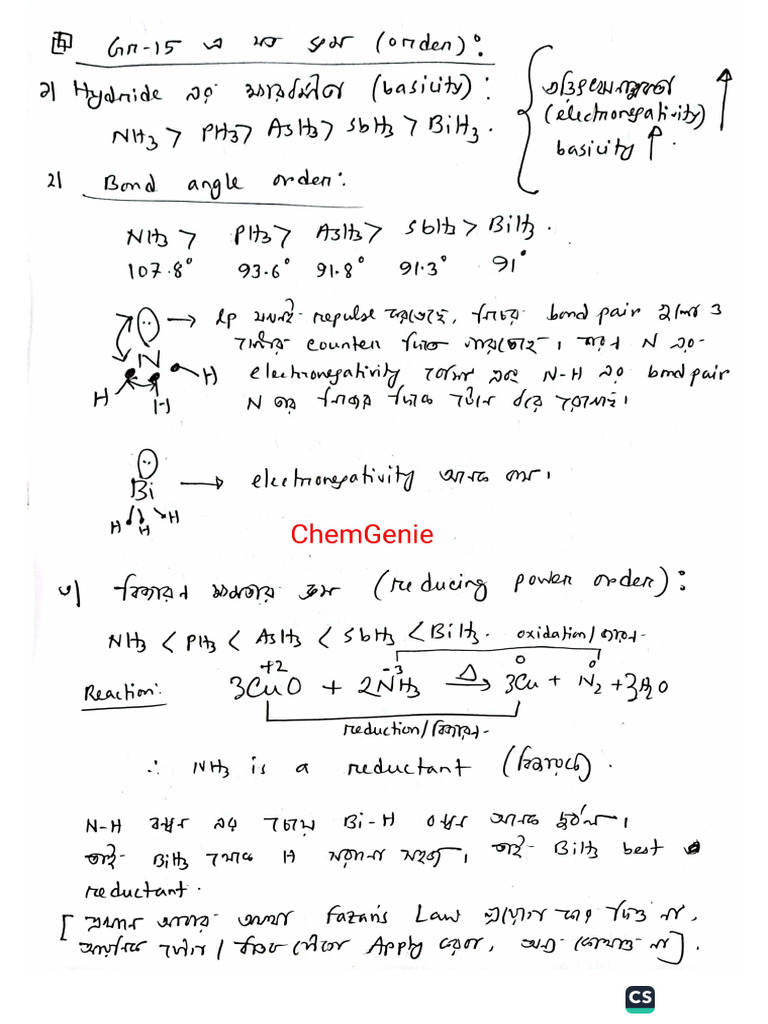 Gr-15 এ সব ক্রম (order):
১। Hydride এর ক্ষারধর্মীতা (basicity):
NH3 > PH3 > AsH3 > SbH3 > BiH3.
(electronegativity) ↑
basicity ↑.
২। Bond angle order:
NH3 > PH3 > AsH3 > SbH3 > BiH3.
107.8° 93.6° 91.8° 91.3° 91°
N
H H H
→ lp যতই repulse করতেছে, নিচের bond pair
counter দিতে পারতেছে। কারণ N এর
electronegativity বেশি এবং N-H এর bond pair
N এর নিজের দিকে টেনে ধরে রেখেছে।
Bi
H H H
→ electronegativity অনেক কম।
ChemGenie
৩। বিজারণ ক্ষমতার ক্রম (reducing power order):
NH3 < PH3 < AsH3 < SbH3 < BiH3. oxidation/জারণ
+2 -3 0 0
Reaction: 3CuO + 2NH3 Δ→ 3Cu + N2 + 3H2O
reduction/বিজারণ
∴ NH3 is a reductant (বিজারক).
N-H বন্ধন এর চেয়ে Bi-H বন্ধন অনেক দুর্বল।
তাই BiH3 থেকে H সরানো সহজ। তাই BiH3 best
reductant.
[এখানে আবার Fazan's Law দিও না,
Apply করে,